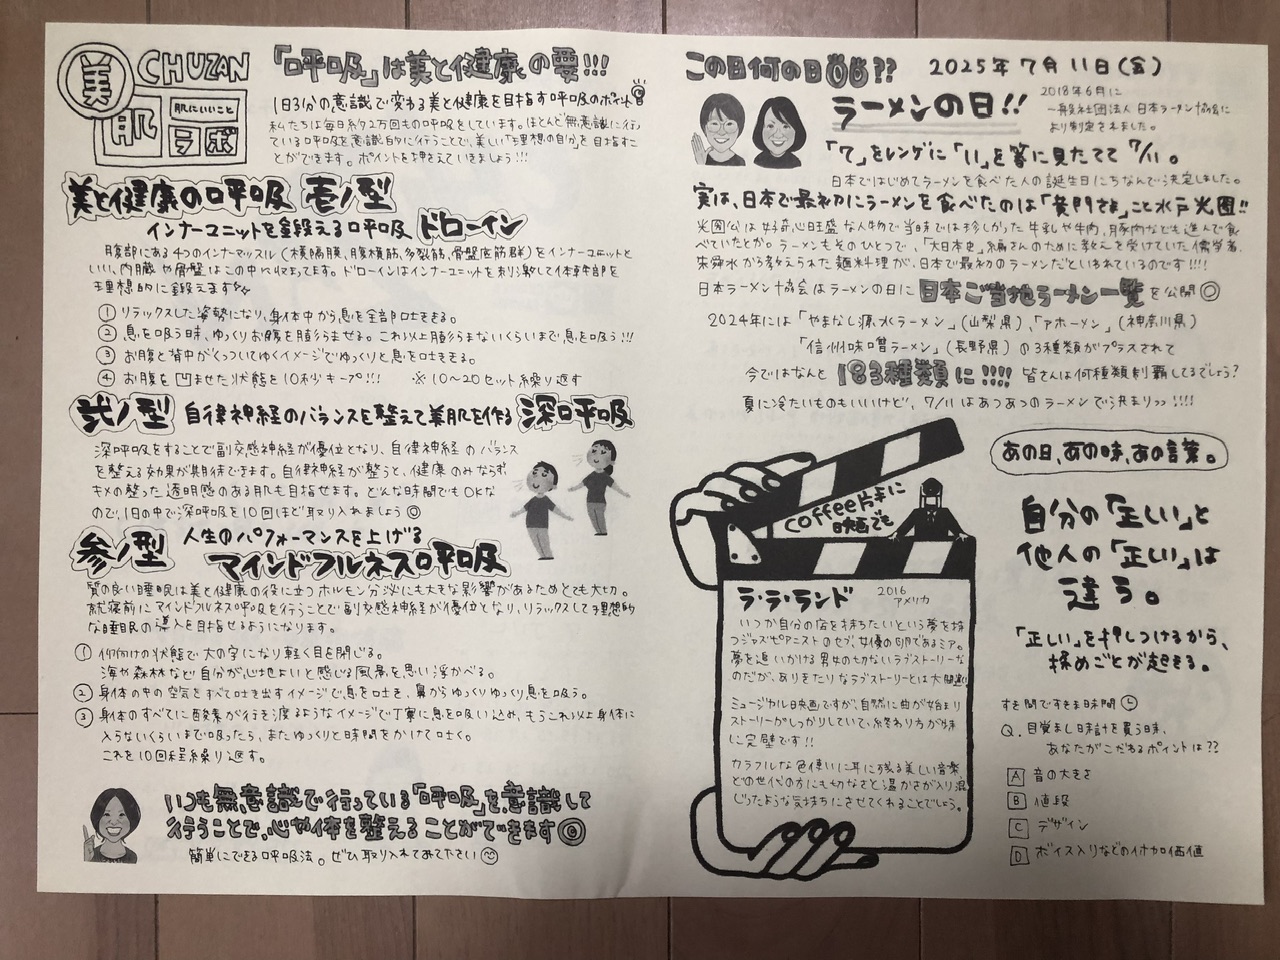 美
CHUZAN
肌にいいこと
肌ラボ
「呼吸」は美と健康の要!!!
1日3分の意識で変わる美と健康を目指す呼吸のポイント
私たちは毎日約2万回もの呼吸をしています。ほとんど無意識に行っ
ている呼吸を意識的に行うことで、美しい「理想の自分」を目指すこ
とができます。ポイントを押さえていきましょう!!!
美と健康の呼吸 壱ノ型
インナーユニットを鍛える呼吸 ドローイン
腹部にある4つのインナーマッスル(横隔膜、腹横筋、多裂筋、骨盤底筋群)をインナーユニットと
いい、内臓や骨盤はこの中に収まってます。ドローインはインナーユニットを刺激して体幹部を
理想的に鍛えます
① リラックスした姿勢になり、身体中から息を全部吐ききる。
② 息を吸う時、ゆっくりお腹を膨らませる。これ以上膨らまないくらいまで息を吸う!!!
③ お腹と背中がくっついてゆくイメージでゆっくりと息を吐ききる。
④ お腹を凹ませた状態を10秒キープ!!! ※10〜20セット繰り返す
弐ノ型 自律神経のバランスを整えて美肌を作る 深呼吸
深呼吸をすることで副交感神経が優位となり、自律神経のバランス
を整える効果が期待できます。自律神経が整うと、健康のみならず
キメの整った透明感のある肌も目指せます。どんな時間でもOKな
ので、1日の中で深呼吸を10回ほど取り入れましょう◎
参ノ型 人生のパフォーマンスを上げる
マインドフルネス呼吸
質の良い睡眠は美と健康の役に立つホルモン分泌にも大きな影響があるためとても大切。
就寝前にマインドフルネス呼吸を行うことで副交感神経が優位となり、リラックスして理想的
な睡眠の導入を目指せるようになります。
① 仰向けの状態で大の字になり軽く目を閉じる。
海や森林など自分が心地よいと感じる風景を思い浮かべる。
② 身体の中の空気をすべて吐き出すイメージで息を吐き、鼻からゆっくりゆっくり息を吸う。
③ 身体のすべてに酸素が行き渡るようなイメージで丁寧に息を吸い込め、もうこれ以上身体に
入らないくらいまで吸ったら、またゆっくりと時間をかけて吐く。
これを10回程繰り返す。
いつも無意識で行っている「呼吸」を意識して
行うことで、心や体を整えることができます◎
簡単にできる呼吸法。ぜひ取り入れてみてください
この日何の日??
2025年7月11日(金)
ラーメンの日!!
2018年6月に
一般社団法人 日本ラーメン協会に
より制定されました。
「7」をレンゲに「11」を箸に見たてて 7/11。
日本ではじめてラーメンを食べた人の誕生日にちなんで決定しました。
実は、日本で最初にラーメンを食べたのは「黄門さま」こと水戸光圀!!
光圀公は好奇心旺盛な人物で当時では珍しかった牛乳や牛肉、豚肉なども進んで食
べていたとか。ラーメンもそのひとつで、「大日本史」編さんのために教えを受けていた儒学者、
朱舜水から教えられた麺料理が、日本で最初のラーメンだといわれているのです!!!!
日本ラーメン協会はラーメンの日に 日本ご当地ラーメン一覧 を公開◎
2024年には「やまなし源水ラーメン」(山梨県)、「アホーメン」(神奈川県)
「信州味噌ラーメン」(長野県)の3種類がプラスされて
今ではなんと 183種類に!!!! 皆さんは何種類制覇してるでしょう?
夏に冷たいものもいいけど、7/11はあつあつのラーメンで決まりっっ!!!!
coffee片手に
映画でも
ラ・ラ・ランド 2016
アメリカ
いつか自分の店を持ちたいという夢を持
つジャズピアニストのセブ、女優の卵であるミア。
夢を追いかける男女の切ないラブストーリーな
のだが、ありきたりなラブストーリーとは大間違い
ミュージカル映画ですが、自然に曲が始まり
ストーリーがしっかりしていて、終わり方が妹
に完璧です!!
カラフルな色使いに耳に残る美しい音楽、
どの世代の方にも切なさと温かさが入り混
じったような気持ちにさせてくれることでしょう。
あの日、あの味、あの言葉。
自分の「正しい」と
他人の「正しい」は
違う。
「正しい」を押しつけるから、
揉めごとが起きる。
すき間ですきま時間
Q. 目覚まし時計を買う時、
あなたがこだわるポイントは??
A 音の大きさ
B 値段
C デザイン
D ボイス入りなどの付加価値